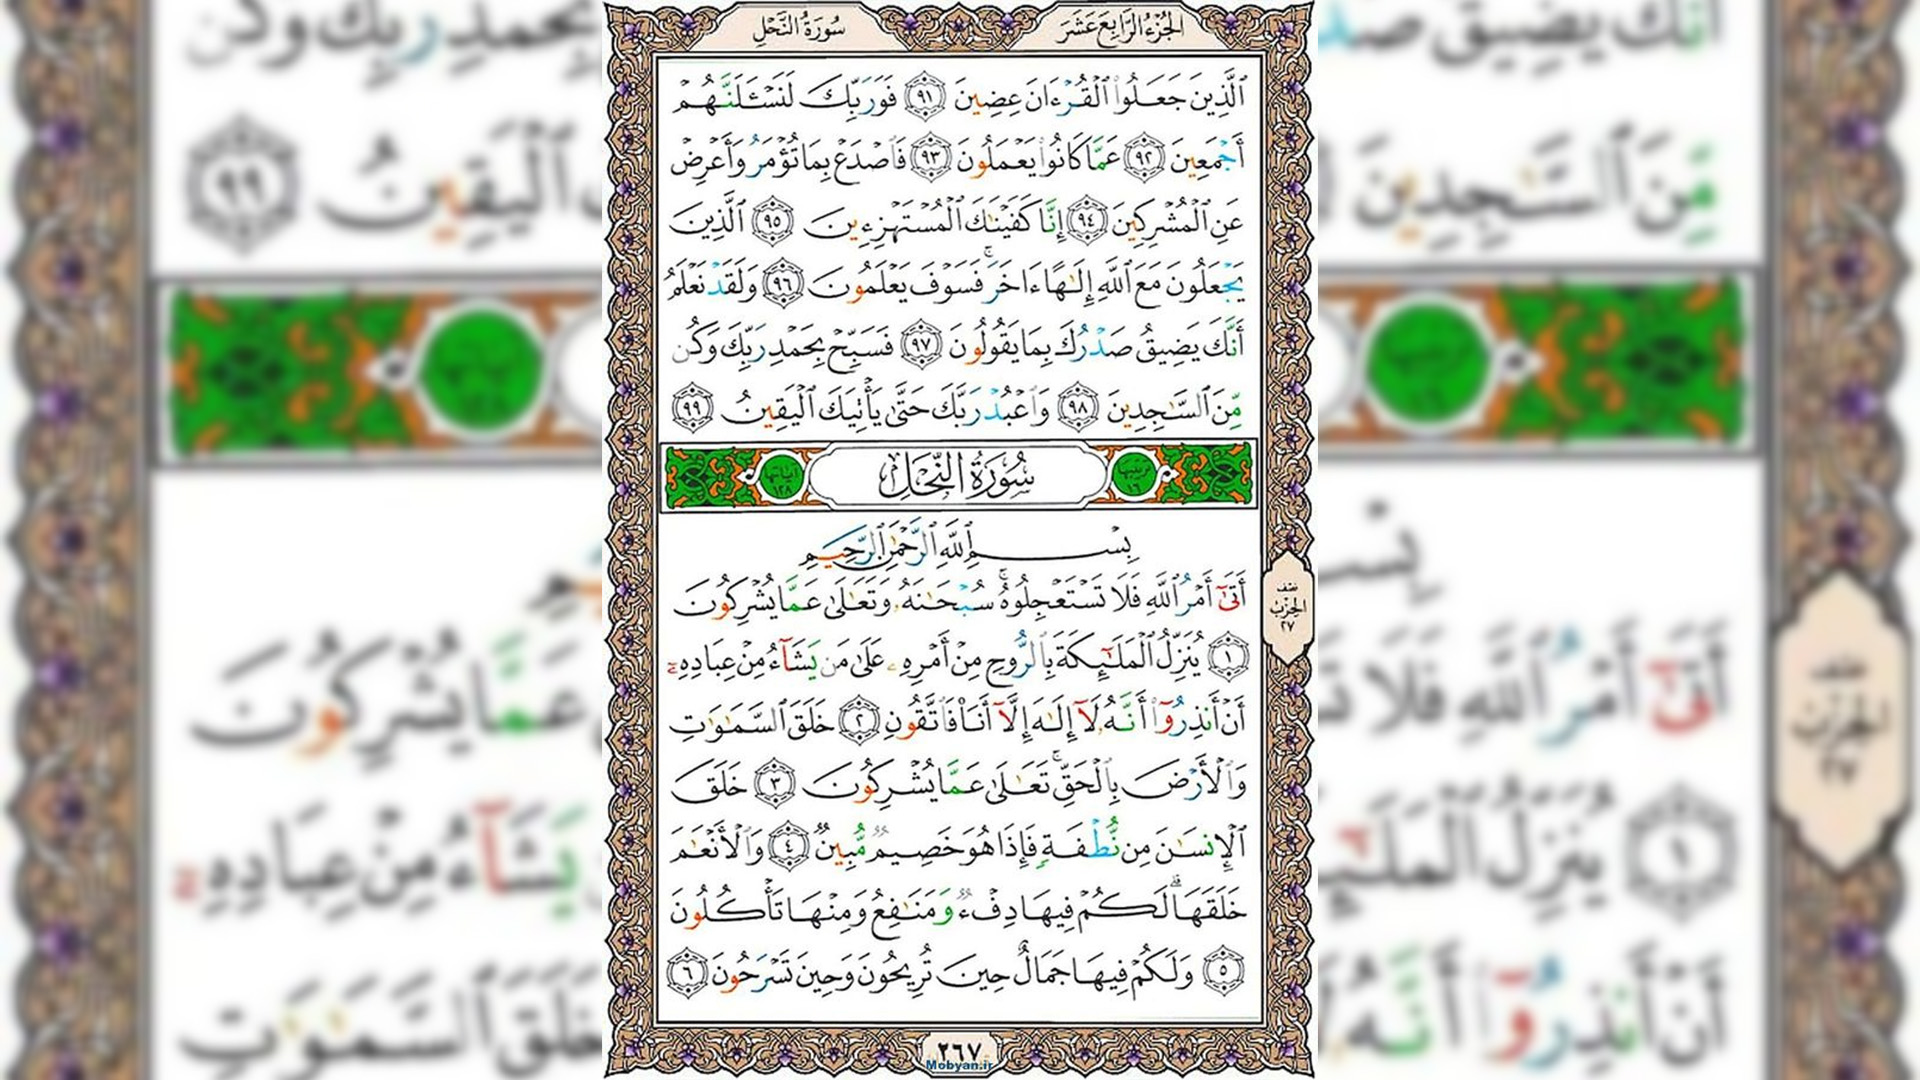 الجزء الرابع عشر
سورة النحل
ٱلَّذِينَ جَعَلُوا۟ ٱلْقُرْءَانَ عِضِينَ ٩١ فَوَرَبِّكَ لَنَسْـَٔلَنَّهُمْ
أَجْمَعِينَ ٩٢ عَمَّا كَانُوا۟ يَعْمَلُونَ ٩٣ فَٱصْدَعْ بِمَا تُؤْمَرُ وَأَعْرِضْ
عَنِ ٱلْمُشْرِكِينَ ٩٤ إِنَّا كَفَيْنَٰكَ ٱلْمُسْتَهْزِءِينَ ٩٥ ٱلَّذِينَ
يَجْعَلُونَ مَعَ ٱللَّهِ إِلَٰهًا ءَاخَرَ ۚ فَسَوْفَ يَعْلَمُونَ ٩٦ وَلَقَدْ نَعْلَمُ
أَنَّكَ يَضِيقُ صَدْرُكَ بِمَا يَقُولُونَ ٩٧ فَسَبِّحْ بِحَمْدِ رَبِّكَ وَكُن
مِّنَ ٱلسَّٰجِدِينَ ٩٨ وَٱعْبُدْ رَبَّكَ حَتَّىٰ يَأْتِيَكَ ٱلْيَقِينُ ٩٩
ترتيبها ١٦
سُورَةُ النَّحْلِ
آياتها ١٢٨
بِسْمِ ٱللَّهِ ٱلرَّحْمَٰنِ ٱلرَّحِيمِ
أَتَىٰٓ أَمْرُ ٱللَّهِ فَلَا تَسْتَعْجِلُوهُ ۚ سُبْحَٰنَهُۥ وَتَعَٰلَىٰ عَمَّا يُشْرِكُونَ
١ يُنَزِّلُ ٱلْمَلَٰٓئِكَةَ بِٱلرُّوحِ مِنْ أَمْرِهِۦ عَلَىٰ مَن يَشَآءُ مِنْ عِبَادِهِۦٓ
أَنْ أَنذِرُوٓا۟ أَنَّهُۥ لَآ إِلَٰهَ إِلَّآ أَنَا۠ فَٱتَّقُونِ ٢ خَلَقَ ٱلسَّمَٰوَٰتِ
وَٱلْأَرْضَ بِٱلْحَقِّ ۚ تَعَٰلَىٰ عَمَّا يُشْرِكُونَ ٣ خَلَقَ
ٱلْإِنسَٰنَ مِن نُّطْفَةٍ فَإِذَا هُوَ خَصِيمٌ مُّبِينٌ ٤ وَٱلْأَنْعَٰمَ
خَلَقَهَا ۗ لَكُمْ فِيهَا دِفْءٌ وَمَنَٰفِعُ وَمِنْهَا تَأْكُلُونَ
٥ وَلَكُمْ فِيهَا جَمَالٌ حِينَ تُرِيحُونَ وَحِينَ تَسْرَحُونَ ٦
نصف
الحزب
٢٧
٢٦٧
Mobyan.ir